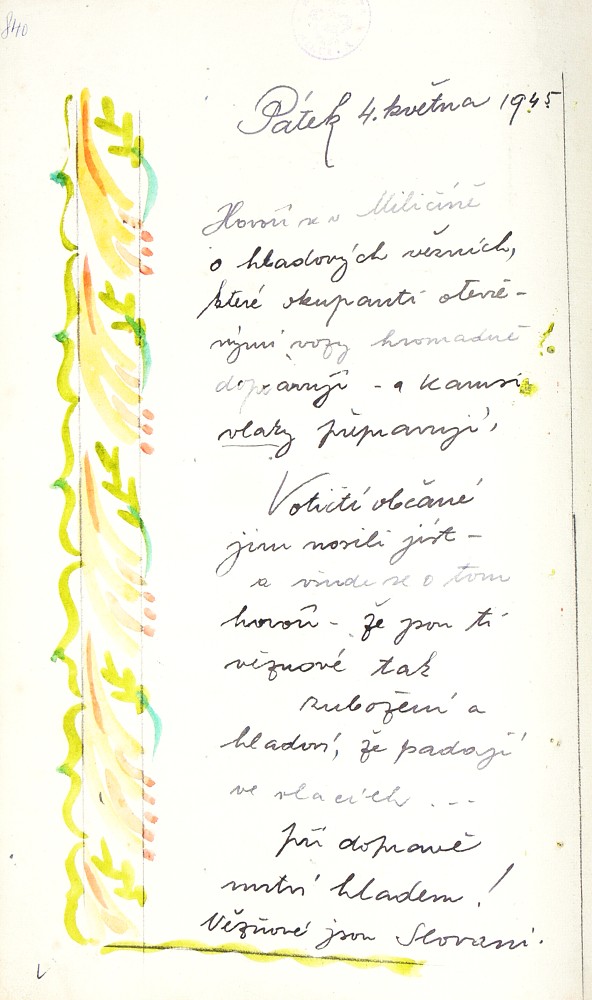 840
Pátek 4. května 1945
Hovoří se v Miličíně
o hladových vězních,
které okupanti otevře-
nými vozy hromadně
dopravují - a kamsi
vlaky přepravují,
Votičtí občané
jim nosili jíst -
a všude se o tom
hovoří - že jsou ti
vězňové tak
zubožení a
hladoví, že padají
ve vlacích ...
při dopravě
mrtví hladem!
Vězňové jsou Slované.